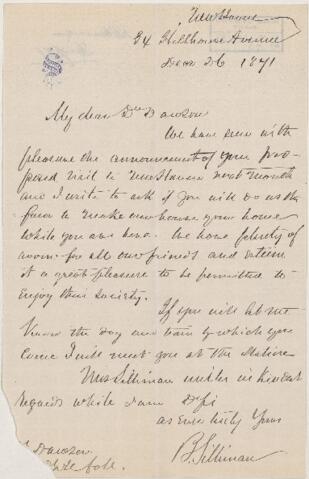 New Haven
34 Hillhouse Avenue
Dec 26 1871
My dear Dr Dawson
We have seen with
pleasure the announcement of your pro-
posed visit to New Haven next month
and I write to ask if you will do us the
favor to make our house your home
while you are here. We have plenty of
room for all our friends and esteem
it a great pleasure to be permitted to
enjoy their society.
If you will let me
know the day and train by which you
come I will meet you at the Station
Mrs Silliman unites in kindest
regards while I am
as ever truly Yours
B. Silliman
Dawson